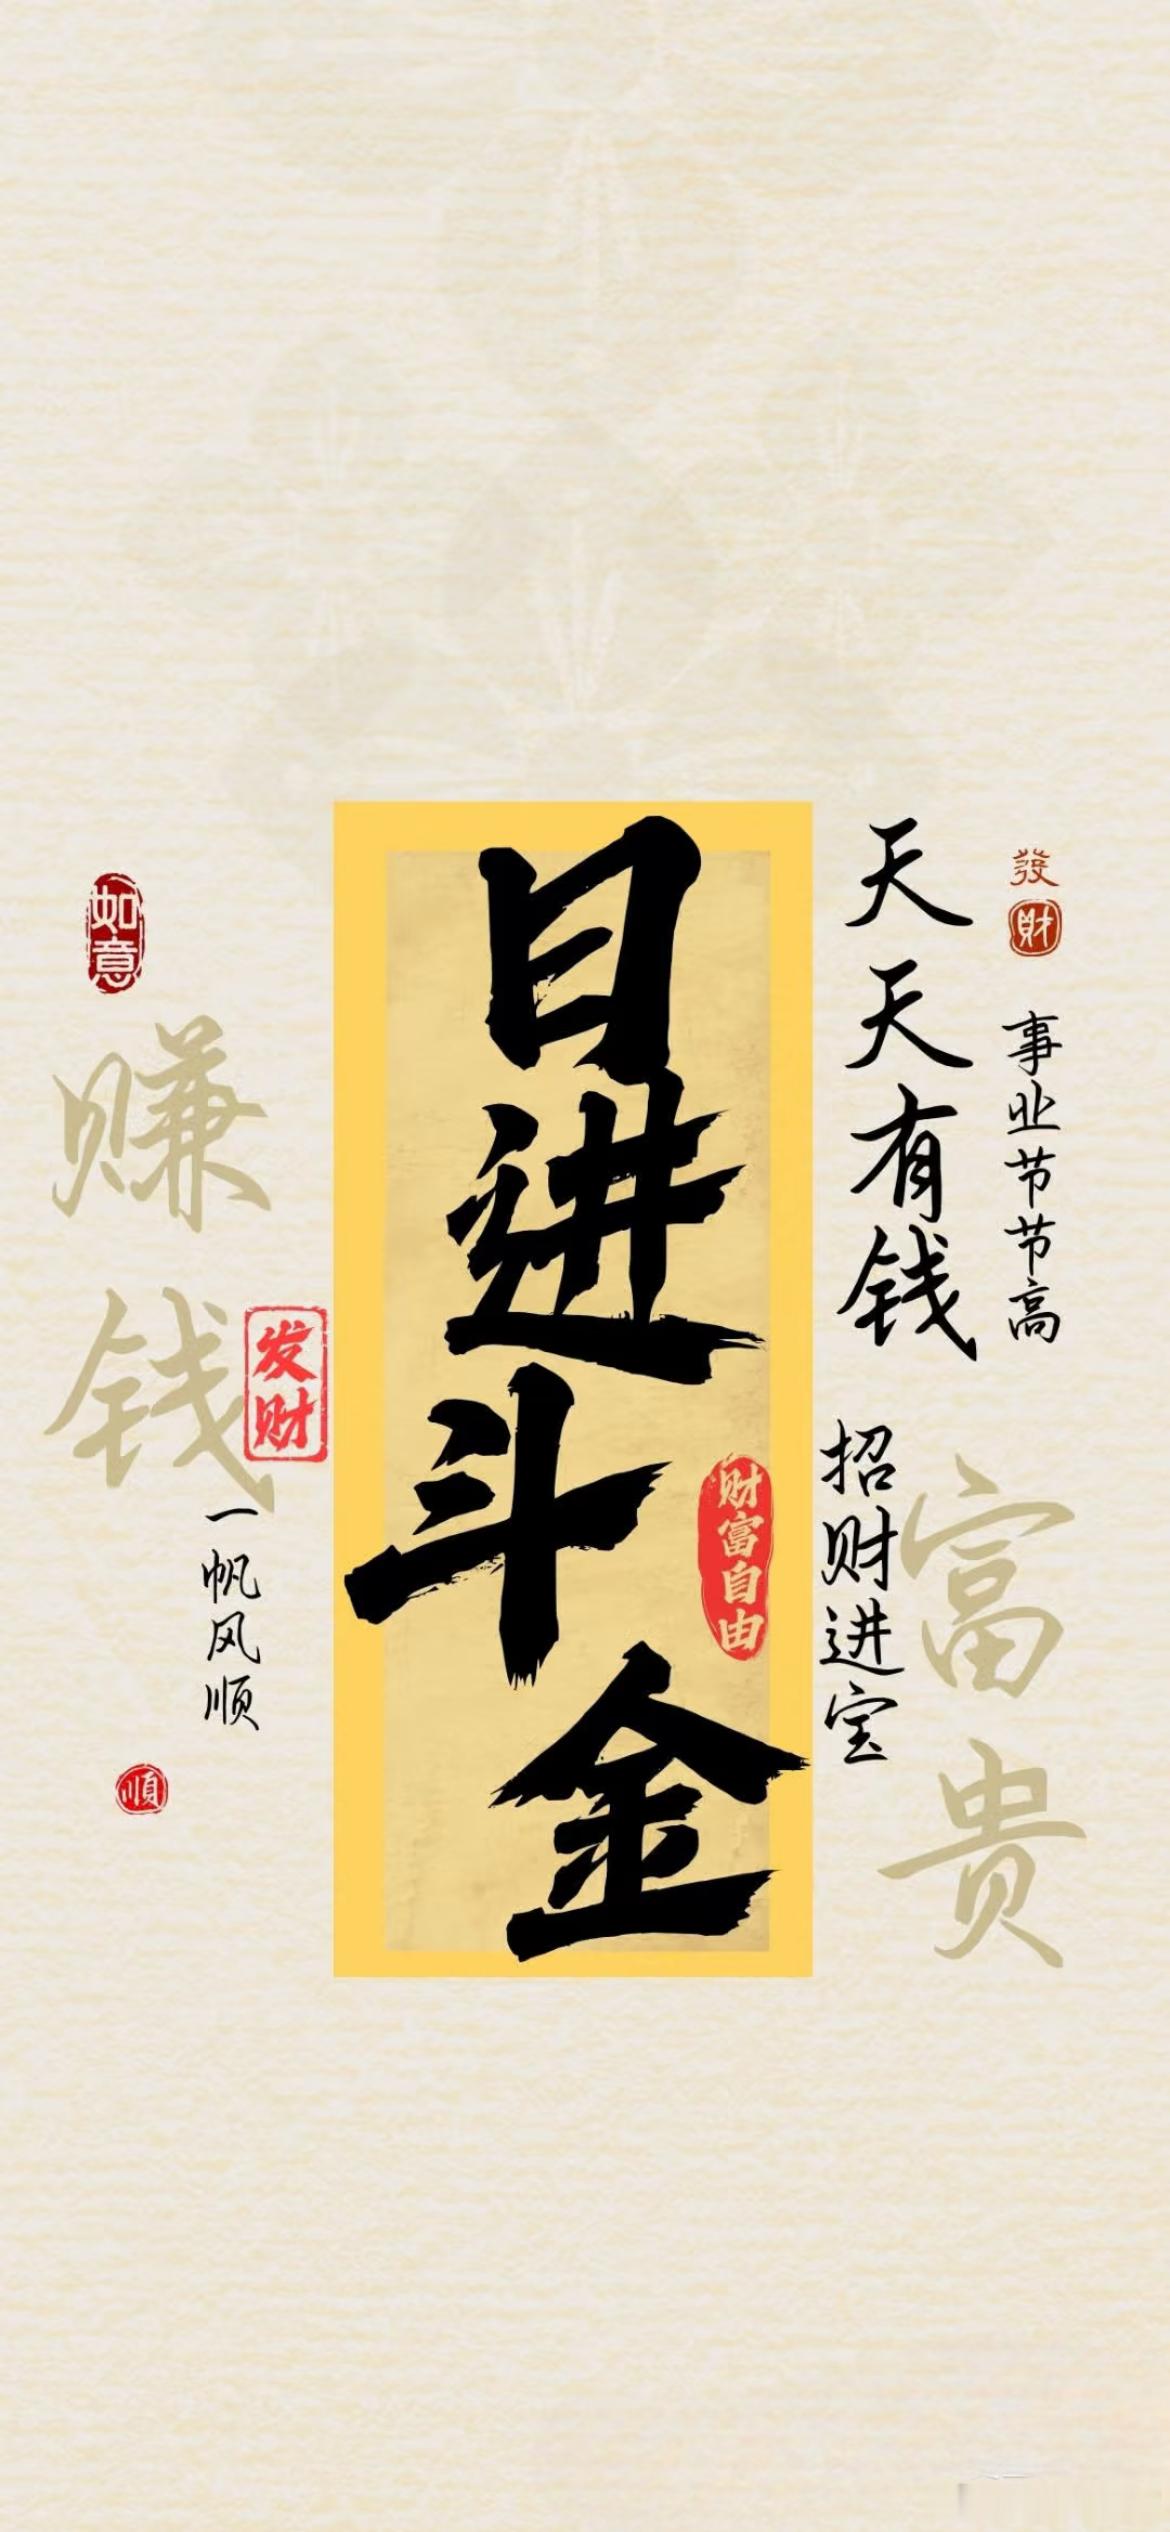 日进斗金
财富自由
天天有钱
發财
事业节节高
招财进宝
富贵
如意
赚钱
发财
一帆风顺
順